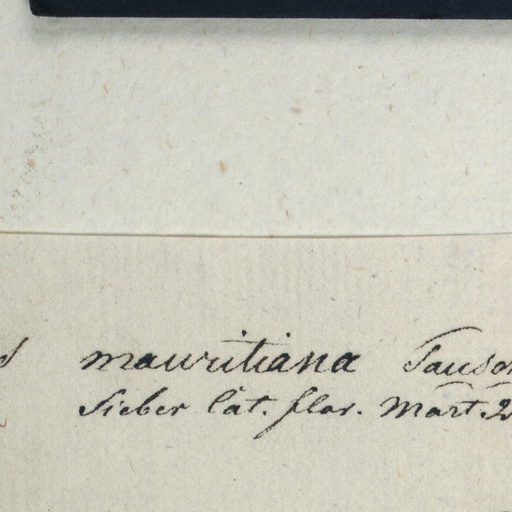 mauritiana Tausch
Sieber Cat. flor. Mart. 2